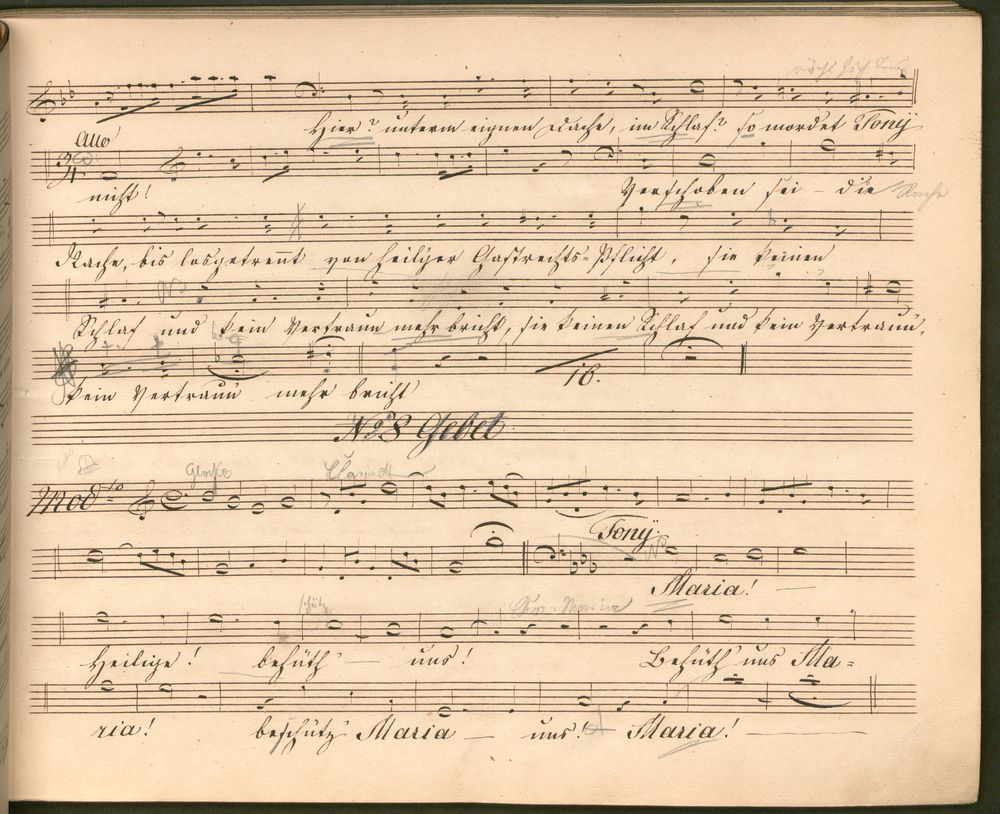 Hier? unterm eignen Dache, im Schlaf? so mordet Tonÿ
Allo
nicht! Verschoben sei – die Rache
Rache, bis losgetrent von heilger Gastrechts-Pflicht, sie keinen
Schlaf und kein Vertraun mehr bricht, sie keinen Schlaf und kein Vertraun,
kein Vertraun mehr bricht
16.
No 8 Gebet
Glocke
Modto
Tonÿ.
Maria! —
schütz
Chor. Maria
Heilige! behüth — uns! Behüth uns Ma=
ria! beschütz Maria — uns! Maria! —